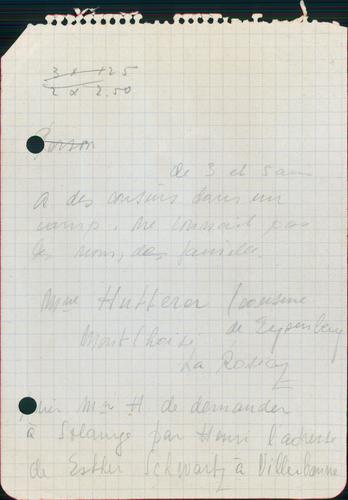 3 x 125
2 x 2.50
de 3 et 5 ans
A des cousins dans un
camp. Ne connait pas
les noms, des familles.
Mme Hutterer (cousine
de Eysenberg
Mont Choisi
La Rosiaz
prier Mme H de demander
à Solange par Henri l'adresse
de Esther Schwartz à Villeurbanne